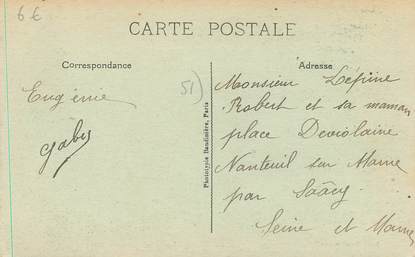 6 €
CARTE POSTALE
Correspondance
Eugénie
Gaby
51)
Phototypie Baudinière, Paris
Adresse
Monsieur Lépine
Robert et sa maman
place Deviolaine
Nanteuil sur Marne
par Saâcy
Seine et Marne